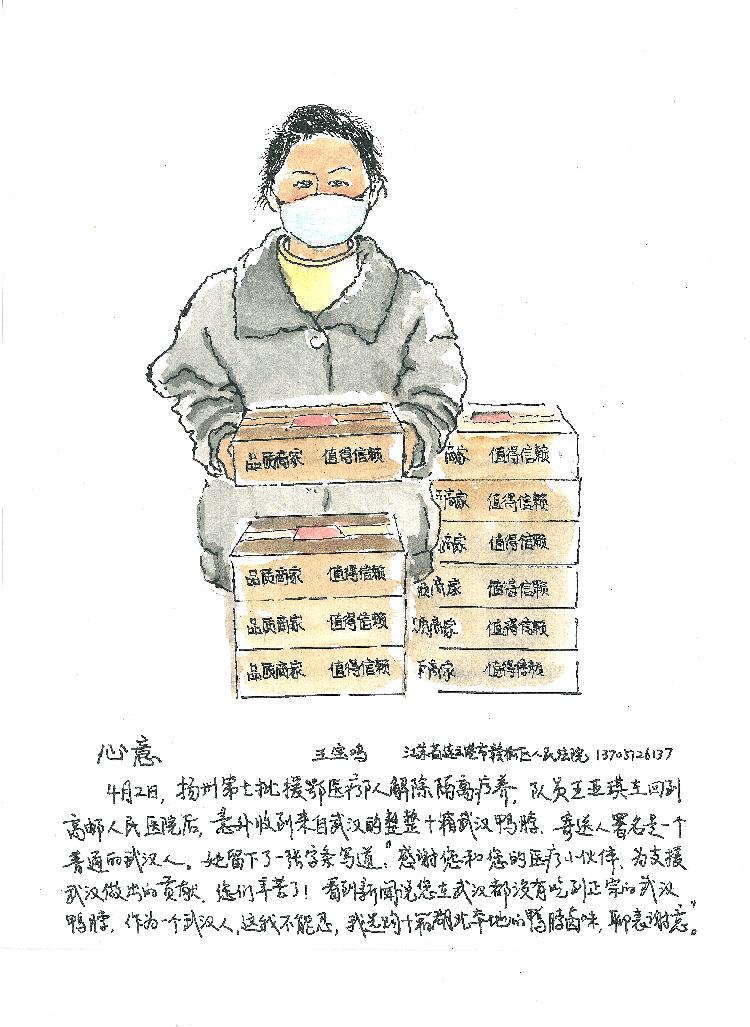 品质商家 值得信赖
商家 值得信赖
商家 值得信赖
商家 值得信赖
品质商家 值得信赖
质商家 值得信赖
品质商家 值得信赖
质商家 值得信赖
品质商家 值得信赖
商家 值得信赖
心意 王宝鸣 江苏省连云港市赣榆区人民法院 13705126137
4月2日，扬州第七批援鄂医疗队解除隔离疗养，队员王亚琪在回到
高邮人民医院后，意外收到来自武汉的整整十箱武汉鸭脖，寄送人署名是一个
普通的武汉人。她留下了一张字条写道：“感谢您和您的医疗小伙伴，为支援
武汉做出的贡献，您们辛苦了！看到新闻说您在武汉都没有吃到正宗的武汉
鸭脖，作为一个武汉人，这我不能忍，我选购十箱湖北本地的鸭脖卤味，聊表谢意”。